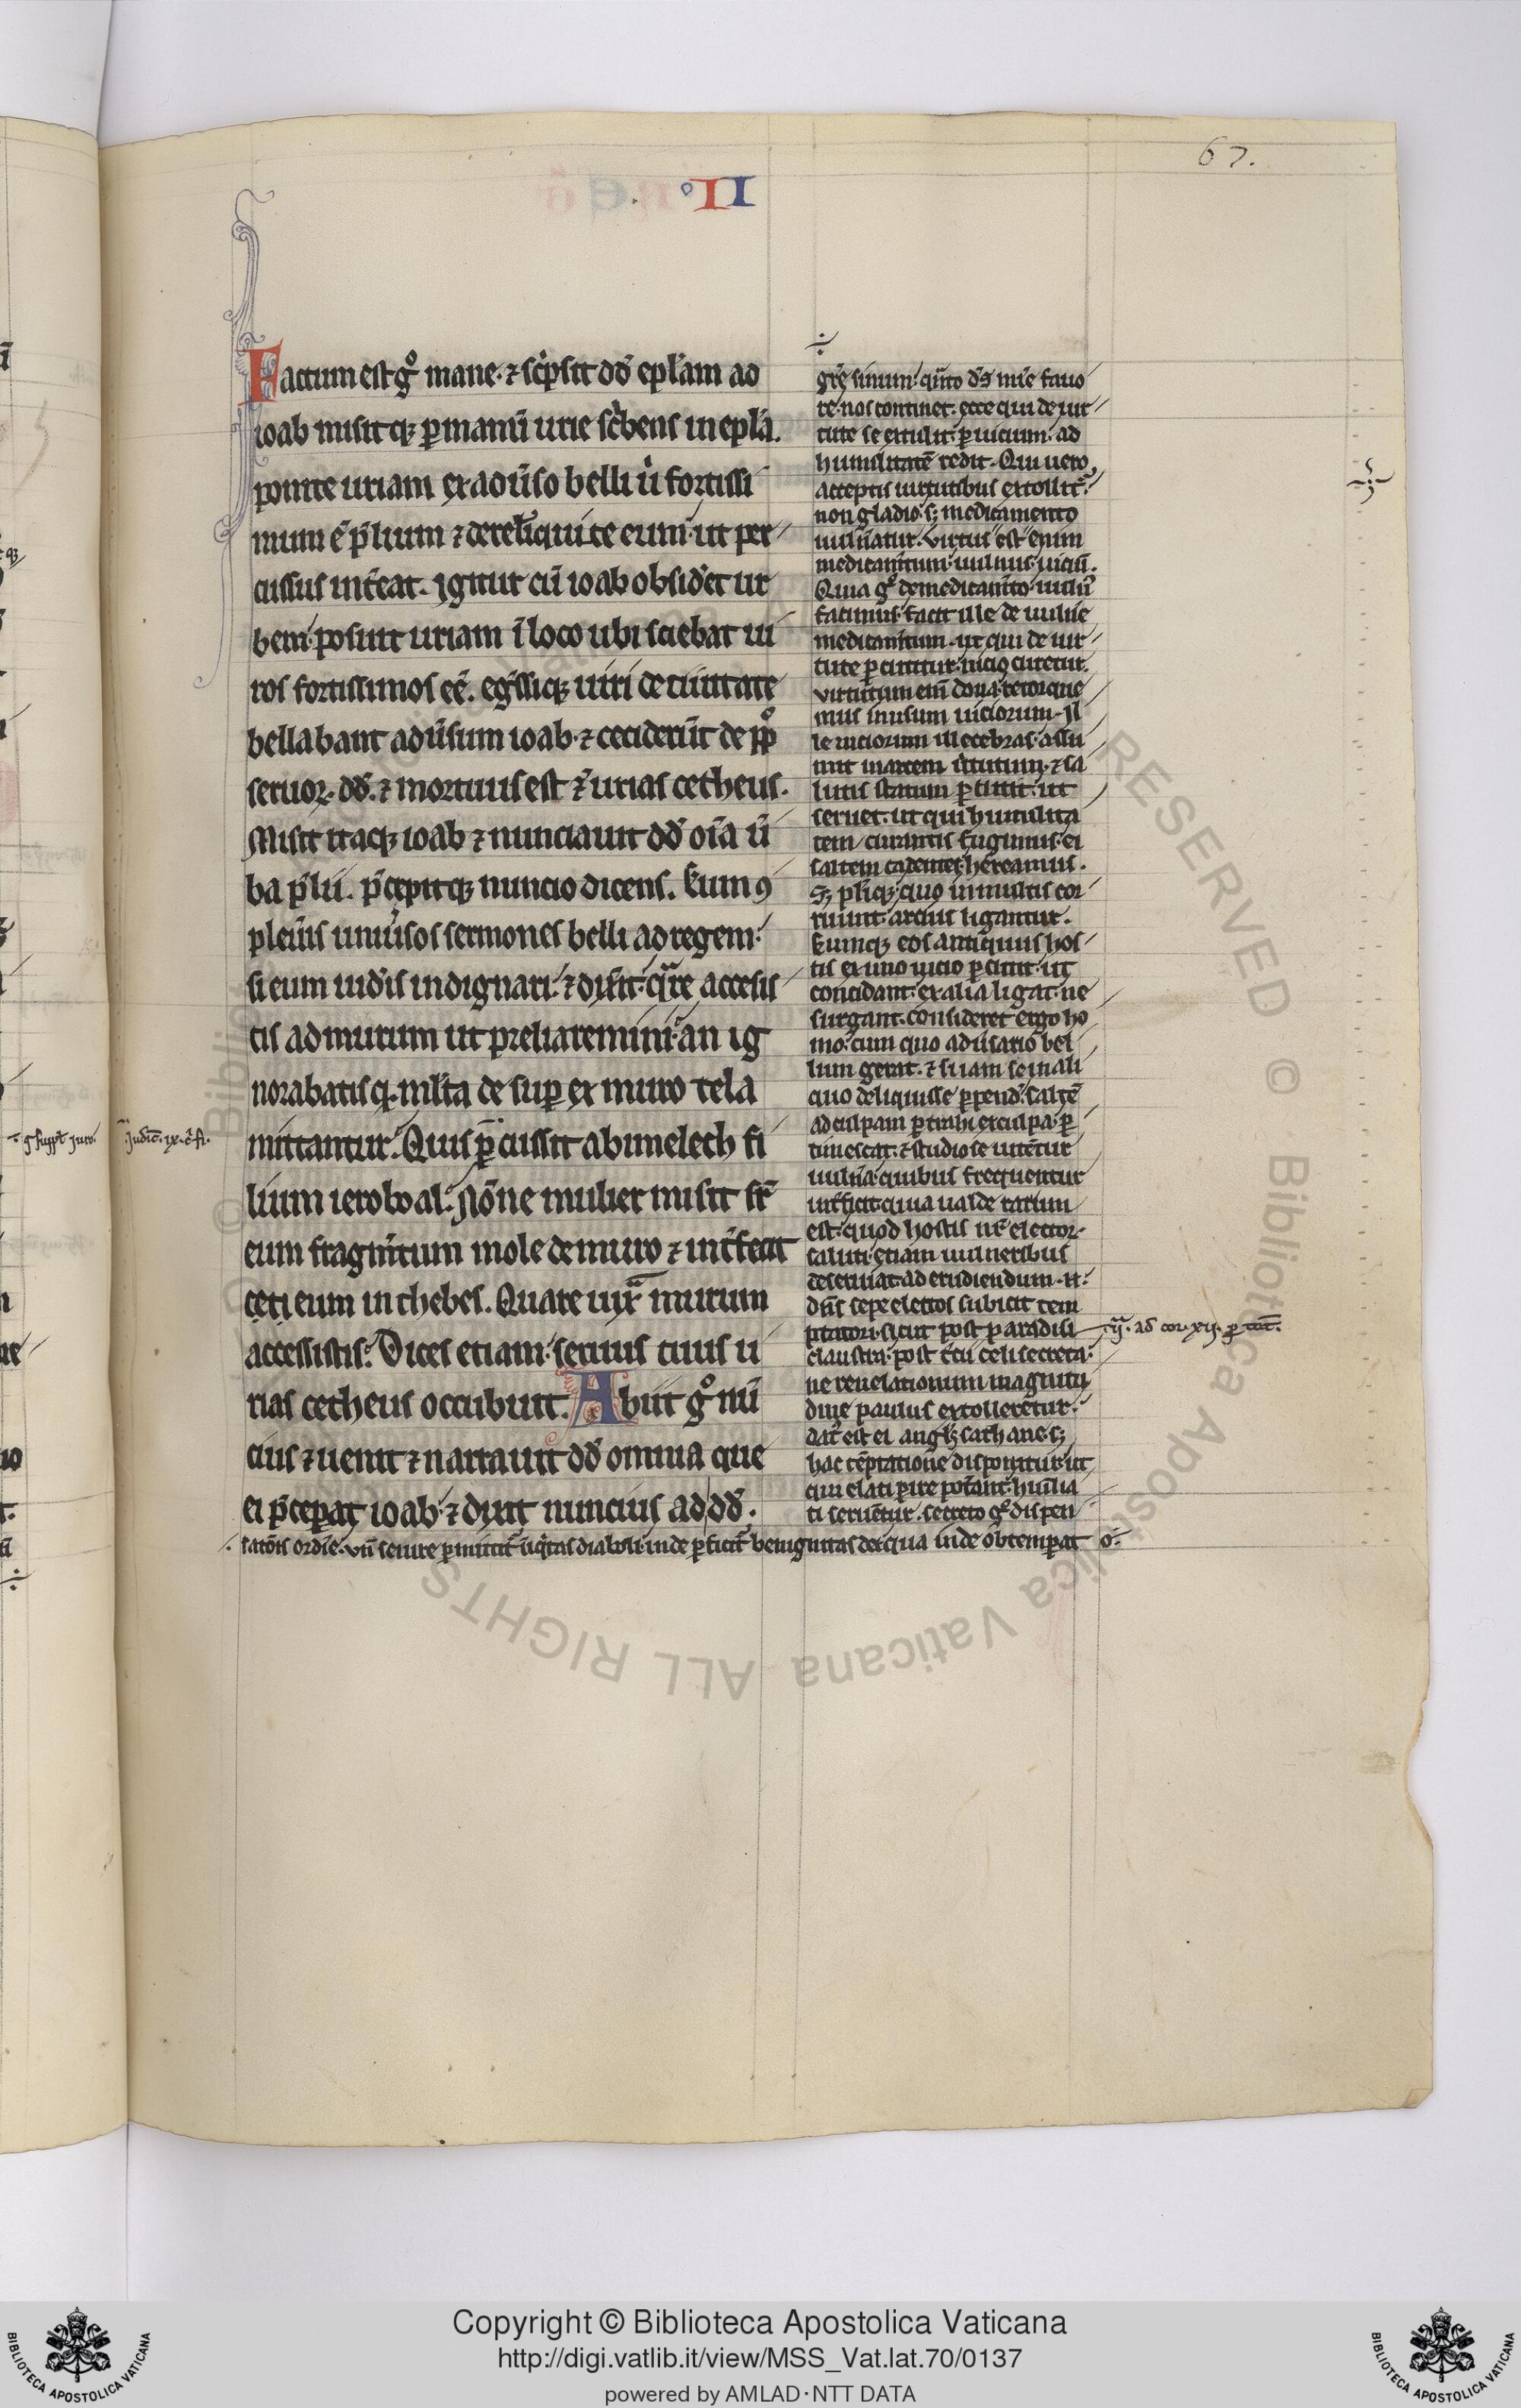 67.
IIº
Factum est gº mane ⁊ sc̓psit dd̓ epl̓am ad
ioab misitq; ꝑ manū urie sc̓bens in epl̓a.
ponite uriam ex adūso belli u̓ fortissi
mum ē p̄lium ⁊ dereliquite eum ut per
cussus int̓eat. Igitur cū ioab obsid̓et ur
bem posuit uriam ī loco ubi sciebat ui
ros fortissimos eē. eg̓ssiq; uiri de ciuitate
bellabant adūsum ioab ⁊ ceciderūt de ppº
seruoꝝ dd̓. ⁊ mortuus est ⁊ urias cetheus.
Misit itaq; ioab ⁊ nunciauit dd̓ oīa ū
ba p̄lii. p̄cepitq; nuncio dicens. Cum ꝯ
pleūis uniūsos sermones belli ad regem
si eum uid̓is indignari ⁊ dix̓it qᵃre accessis
tis ad murum ut preliaremini an ig
norabatis q mlta de suꝑ ex muro tela
mittantur. Quis ꝑcussit abimelech fi
lium ieroboal. Nōne mulier misit sr̄
eum fragm̄tum mole de muro ⁊ int̓fecit
eum in thebes. Quare iuxᵃ murum
accessistis. Dices etiam seruus tuus u
rias cetheus occubuit. Abiit gº nū
cius ⁊ uenit ⁊ narrauit dd̓ omnia que
ei p̄ceꝑat ioab ⁊ dixit nuncius ad dd̓.
re nos continet. ecce qui de uir
tute se extulit ꝑ uicium ad
humilitatē redit. Qui uero
acceptis uirtutibus extollit̓
non gladio s; medicamento
uuln̄atur. Virtus est enim
medicam̄tum uulnus uiciū.
Quia gº de medicam̄to uuln̓
facimus facit ille de uuln̄e
medicam̄tum. ut qui de uir
tute ꝑcutitur uicio curetur.
virtutum enī dona retorque
mus in usum uiciorum. Il
le uiciorum illecebras assu
mit in artem u̓tutum ⁊ sa
lutis statum ꝑcutit ut
seruet. ut qui humilita
tem currentes fugimus ei
saltem cadentes hereamus.
S; pl̓iq; quo in multis cor
ruunt arcius ligantur.
Cumq; eos antiquus hos
tis ex uno uicio ꝑcutit ut
concidant ex alia ligat ne
surgant. consideret ergo ho
mo cum quo adūsario bel
lum gerat. ⁊ si iam se in ali
quo deliquisse ꝑpend̓. saltē
ad culpam ꝑtrahi ex culpa ꝑ
timescat. ⁊ studiose uitētur
uuln̄a quibus frequentur
int̓ficit quia ualde rarum
est quod hostis nr̄ electoꝝ
saluti etiam uulneribus
deseruiat ad erudiendum n.
dn̄s sepe electos subicit tem
ptatori sicut post paradisi
claustra post t̓cii celi secreta
ne reuelationum magnitu
dine paulus extolleretur
dat̓ est ei angl̓s sathane. s;
hac tēptatione disponitur ut
qui elati ꝑire pot̓ant humilia
ti seruētur. secreto gº dispen
satōis ordine. vn̄ seuire ꝑmittit̓ iniq̓tas diaboli inde ꝑficit̓ benignitas dei qua inde obtemꝑat
Judic. ix. c. fi.
ij. ad cor. xij. ꝑ tot.
BIBLIOTECA APOSTOLICA VATICANA
Copyright © Biblioteca Apostolica Vaticana
http://digi.vatlib.it/view/MSS_Vat.lat.70/0137
powered by AMLAD·NTT DATA
BIBLIOTECA APOSTOLICA VATICANA
© Biblioteca Apostolica Vaticana ALL RIGHTS RESERVED